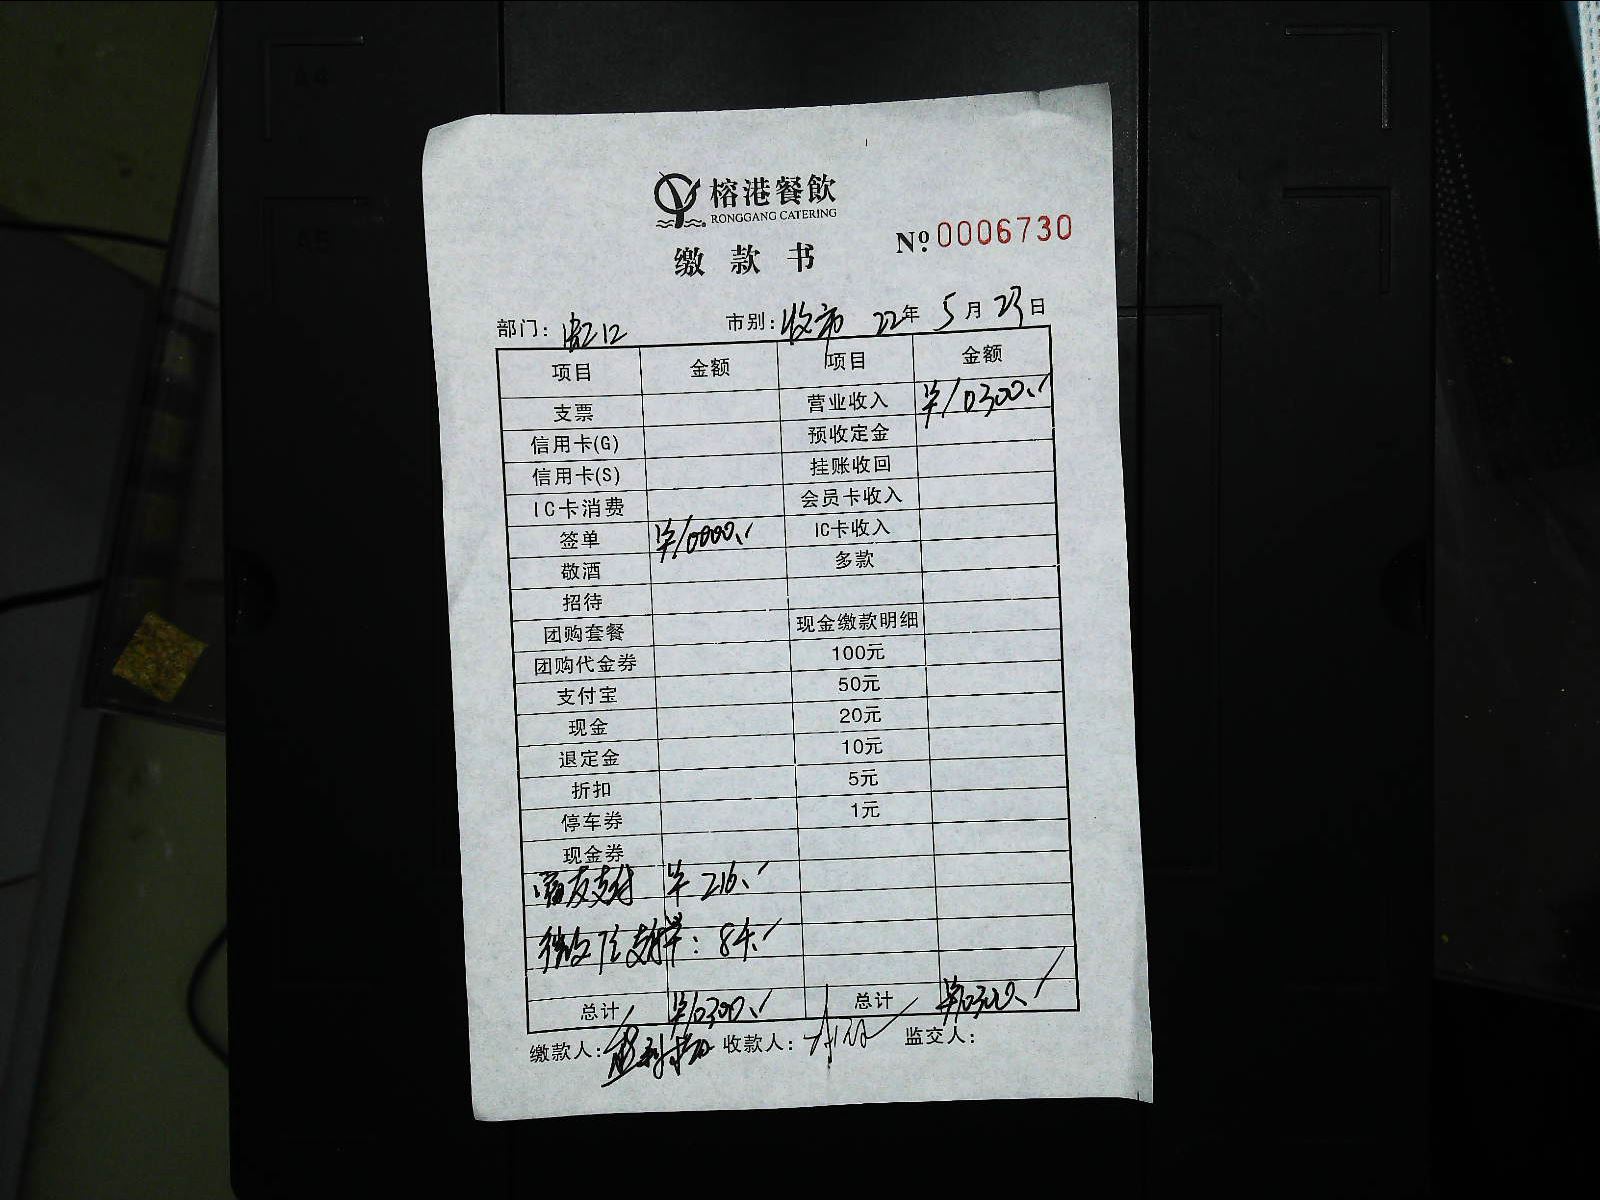 榕港餐飲
RONGGANG CATERING
缴款书
№ 0006730
部门: 虹口 市别: 收市 22年 5月 23日
项目 金额 项目 金额
支票 营业收入 ¥10300.
信用卡(G) 预收定金
信用卡(S) 挂账收回
IC卡消费 会员卡收入
签单 ¥10000. IC卡收入
敬酒 多款
招待
团购套餐 现金缴款明细
团购代金券 100元
支付宝 50元
现金 20元
退定金 10元
折扣 5元
停车券 1元
现金券
支付 ¥216.
支付 ¥: 84.
总计 ¥10300. 总计 ¥10300.
缴款人: 收款人: 监交人:
A4
A5